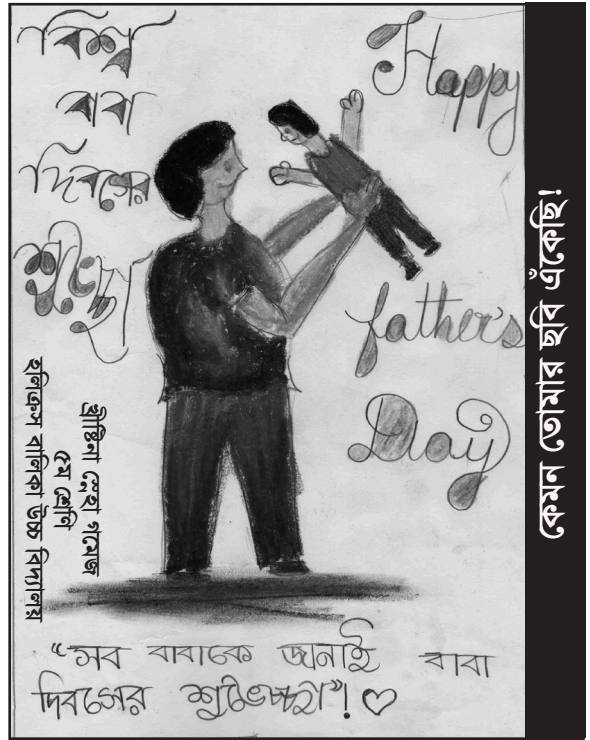 বিশ্ব
বাবা
দিবসের
শুভেচ্ছা
Happy
father's
Day
খ্রীষ্টিনা স্নেহা গমেজ
৫ম শ্রেণি
হলিক্রস বালিকা উচ্চ বিদ্যালয়
“সব বাবাকে জানাই বাবা
দিবসের শুভেচ্ছা”! ♡
কেমন তোমার ছবি এঁকেছি!